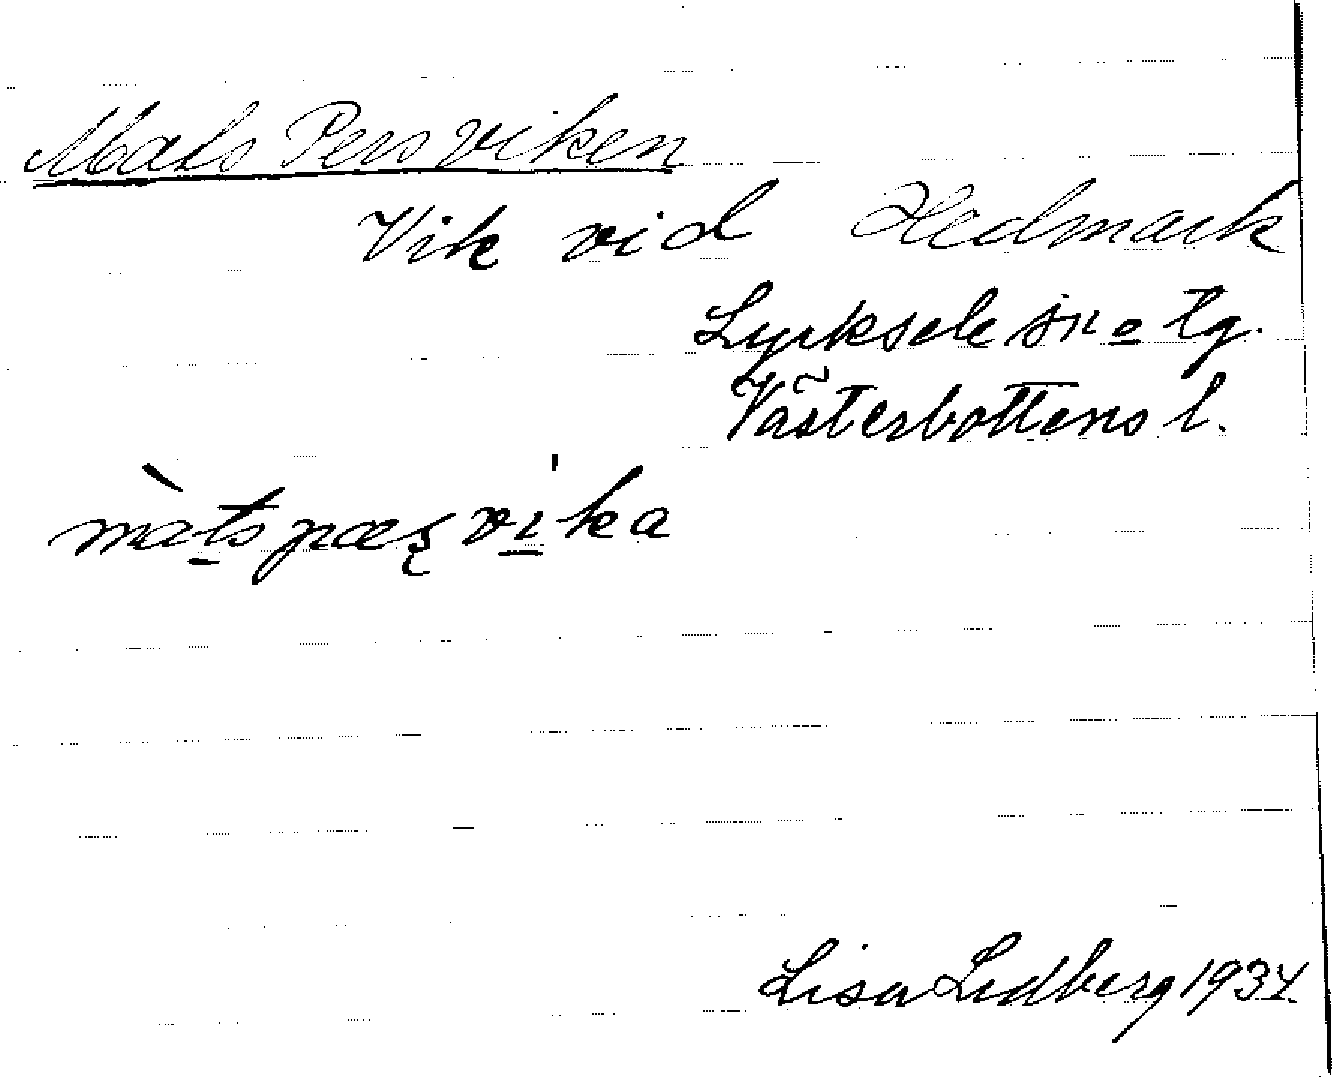 Mats Persviken
Vik vid Hedmark
Lycksele sn o tg.
Västerbottens l.
màtspæʂvi̱ka
Lisa Lidberg 1934.